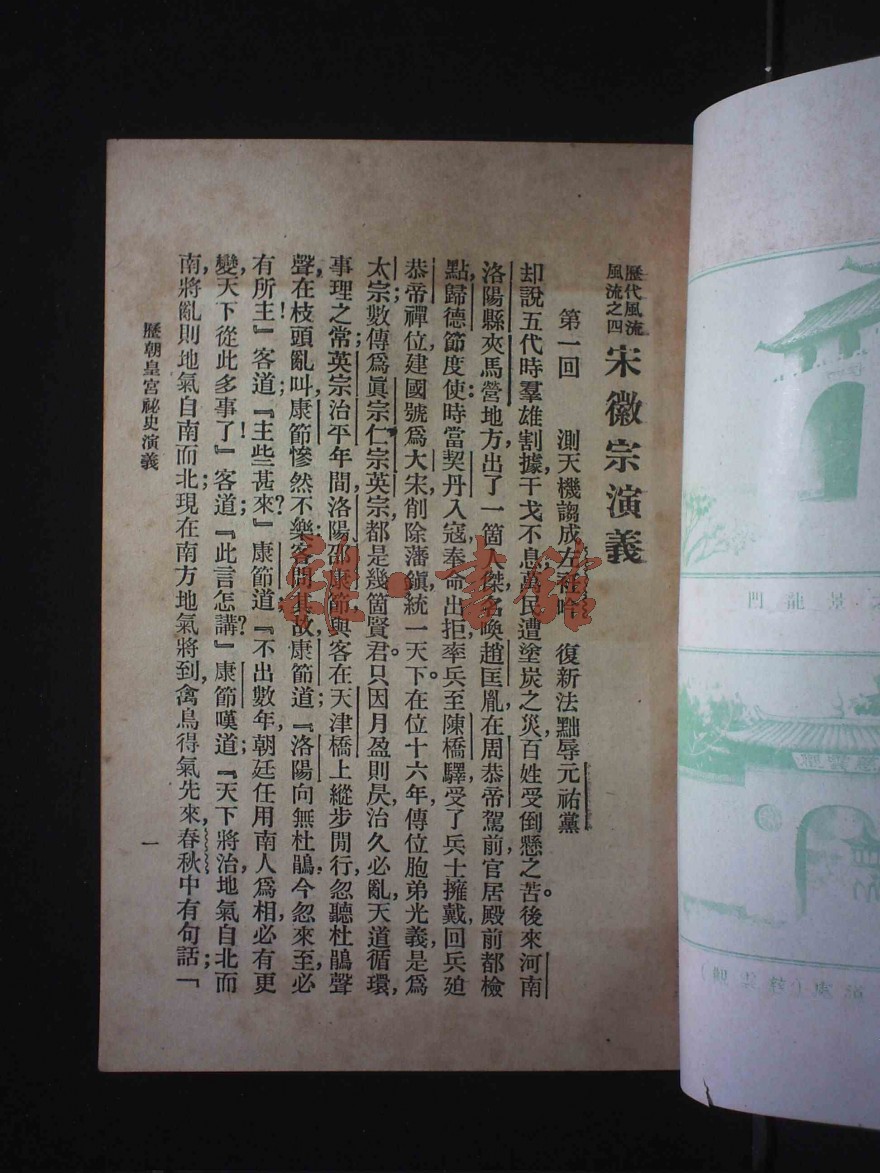 歷代風流
風流之四
宋徽宗演義
第一回　測天機謅成左衽吟　復新法黜辱元祐黨
却說五代時羣雄割據，干戈不息，萬民遭塗炭之災，百姓受倒懸之苦。後來河南
洛陽縣夾馬營地方，出了一箇人傑，名喚趙匡胤，在周恭帝駕前，官居殿前都檢
點，歸德節度使；時當契丹入寇，奉命出拒，率兵至陳橋驛，受了兵士擁戴，回兵廹
恭帝禪位，建國號爲大宋，削除藩鎭，統一天下。在位十六年，傳位胞弟光義，是爲
太宗；數傳爲眞宗仁宗英宗，都是幾箇賢君。只因月盈則昃，治久必亂，天道循環，
事理之常；英宗治平年間，洛陽邵康節，與客在天津橋上縱步閒行，忽聽杜鵑聲
聲，在枝頭亂叫；康節慘然不樂；客問其故，康節道；『洛陽向無杜鵑，今忽來至，必
有所主！』客道；『主些甚來？』康節道；『不出數年，朝廷任用南人爲相，必有更
變，天下從此多事了！』客道；『此言怎講？』康節嘆道；『天下將治，地氣自北而
南，將亂則地氣自南而北；現在南方地氣將到，禽鳥得氣先來，春秋中有句話；「
歷朝皇宮祕史演義
一